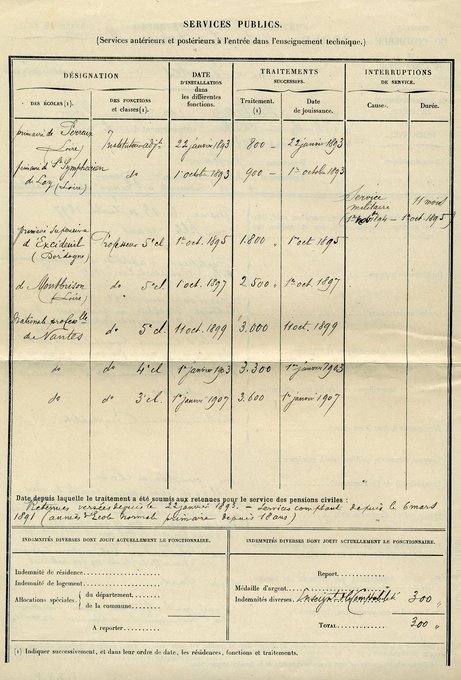 SERVICES PUBLICS.
(Services antérieurs et postérieurs à l'entrée dans l'enseignement technique.)
DÉSIGNATION
DATE
D'INSTALLATION
dans
les différentes
fonctions.
TRAITEMENTS
SUCCESSIFS.
INTERRUPTIONS
DE SERVICE.
DES ÉCOLES (1).
DES FONCTIONS
et classes (1).
Traitement.
(1)
Date
de jouissance.
Cause.
Durée.
primaire de Perreux
(Loire)
Instituteur adjt
22 janvier 1893
800 -
22 janvier 1893
primaire de St Symphorien
de Lay (Loire)
do
1er octobre 1893
900 -
1er octobre 1893
Service
militaire
11 mois
1894 - 1er oct. 1895
primaire supérieure
d'Excideuil
(Dordogne)
Professeur 5e cl
1er oct. 1895
1.800
1er oct 1895
d. Montbrison
(Loire)
do 5e cl
1er oct. 1897
2.500
1er oct. 1897
Nationale profelle
de Nantes
do 5e cl
11 oct. 1899
3.000
11 oct. 1899
do
do 4e cl
1er janvier 1903
3.300
1er janvier 1903
do
do 3e cl.
1er janvier 1907
3.600
1er janvier 1907
Date depuis laquelle le traitement a été soumis aux retenues pour le service des pensions civiles :
Retenues versées depuis le 22 janvier 1893. - Services comptant depuis le 6 mars
1891 (années d'Ecole normale primaire depuis 18 ans)
INDEMNITÉS DIVERSES DONT JOUIT ACTUELLEMENT LE FONCTIONNAIRE.
INDEMNITÉS DIVERSES DONT JOUIT ACTUELLEMENT LE FONCTIONNAIRE.
Indemnité de résidence
Indemnité de logement
Allocations spéciales :
du département
de la commune
A reporter
Report
Médaille d'argent
Indemnités diverses. Enseignt Comptabilité 300 "
TOTAL 300 "
(1) Indiquer successivement, et dans leur ordre de date, les résidences, fonctions et traitements.